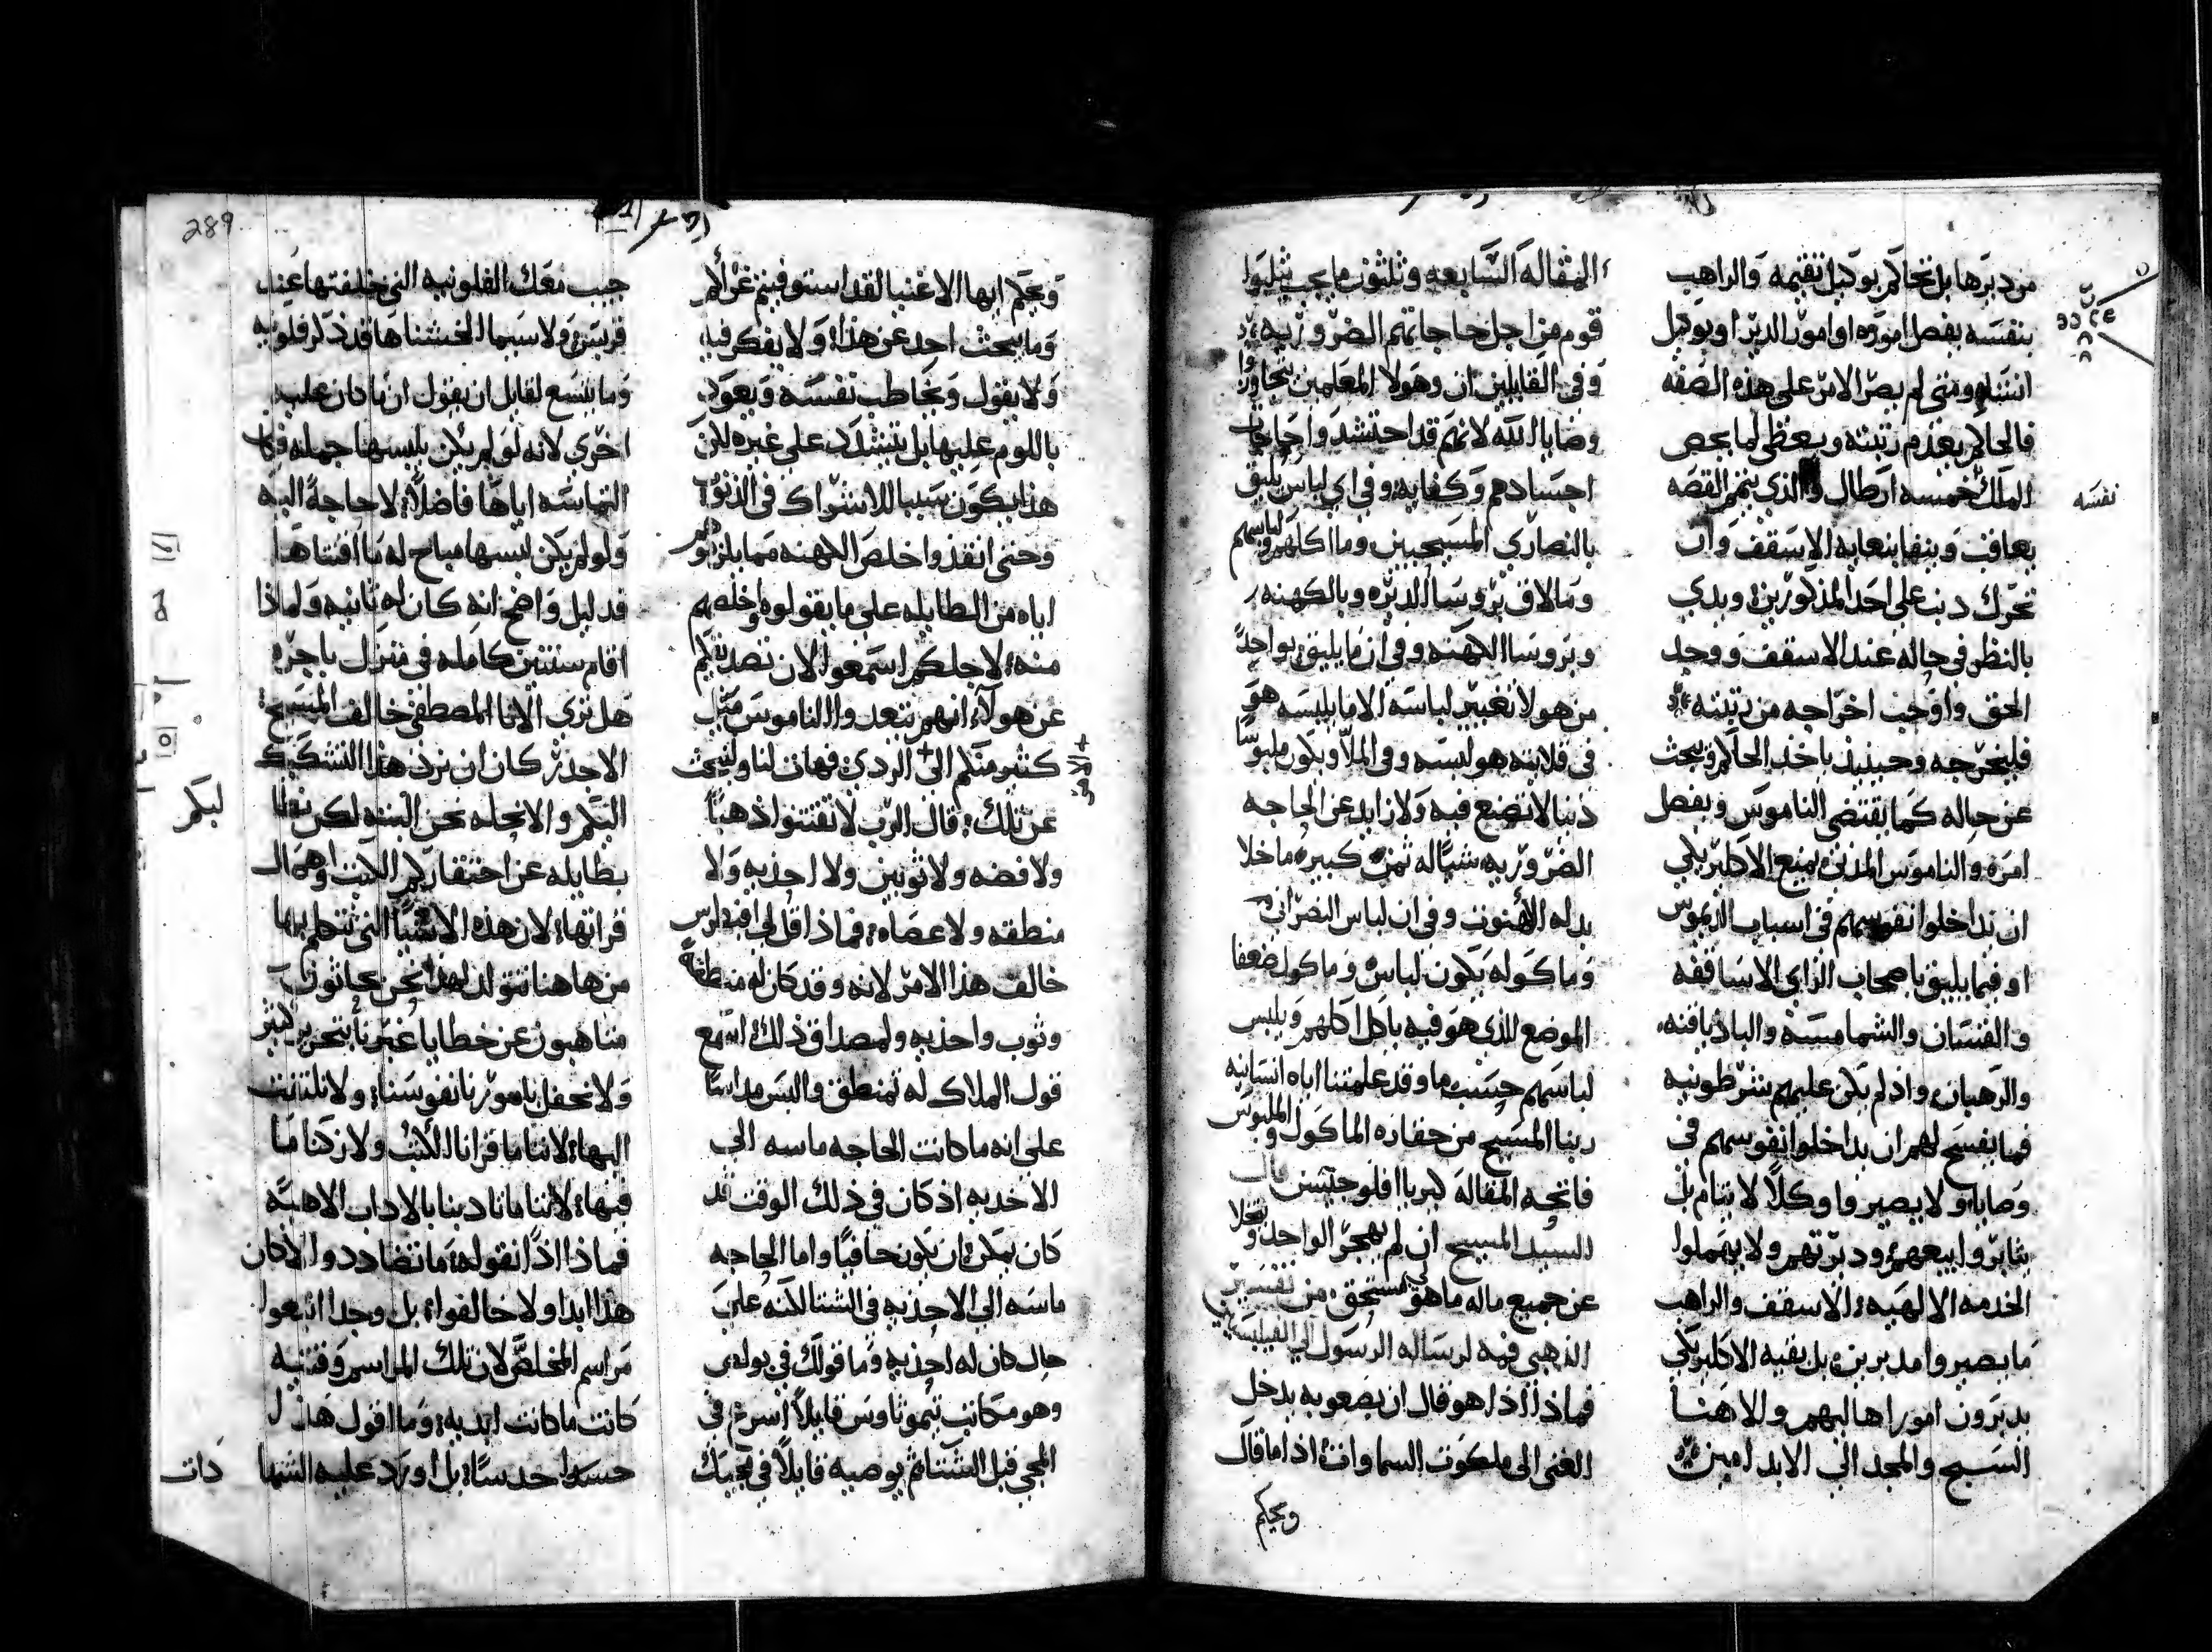 من ديرها بل تحاكم بوكيل تقيمه والراهب
بنفسه يفصل اموره او امور الدير او بوكيل
انشاه ومتى لم يصر الامر على هذه الصفه
فالحاكم يعدم رتبته ويعطى لما يخص
الملك خمسه ارطال والذي يتمم القصه
يعاقب وينفا بنعايه الاسقف وان
تحرك دنب على احد المذكورين وبدي
بالنظر في حاله عند الاسقف ووجد
الحق واوجب اخراجه من رتبته
فليخرجه وحينيذ ياخذ الحاكم ويبحث
عن حاله كما يقتضى الناموس ويفصل
امره والناموس المدني يمنع الاكليريكي
ان يداخلوا نفوسهم في اسباب الديموس
او فيما يليق باصحاب الراي الاساقفه
والقسان والشمامسه والباديافنه
والرهبان واذ لم يكن عليهم شرطونيه
فما يفسح لهم ان يداخلوا نفوسهم في
وصايا ولا يصيروا وكلاً لايتام بل
يثابروا بيعهم ودبرتهم ولا يهملوا
الخدمه الالهيه الاسقف والراهب
ما يصيروا مدبرين بل بقيه الاكليريكي
يدبرون امورا هاليهم ولالاهنا
السبح والمجد الى الابد امين
نفسه
المقاله السابعه وثلثون ما يجب يثلبوا
قوم من اجل حاجاتهم الضروريه
وفي القايلين ان وهولا المعلمين يتجاوزوا
وصايا الله لانهم قد احتشدوا حاجات
اجسادهم وكفايه وفي اي لباس يليق
بالنصاري المسيحيين وما اكلهم ولباسهم
وما لاق بروسا الديره وبالكهنه
وبروسا الكهنه وفي ان ما يليق بواحدً
من هولا تغيير لباسه الا ما يلبسه هو
في قلايته هو لبسه وفي الملا ويكون ملبوسًا
دنيا لا تصنع فيه ولا زايد عن الحاجه
الضروريه شيًا له ثمن كبير ما خلا
بدله الكهنوت وفي ان لباس النصراني
وماكوله يكون لباس وماكول ضعفا
الموضع الذي هو فيه ياكل اكلهم ويلبس
لباسهم حسب ما وقد علمتنا اياه انسانيه
ربنا المسيح من حقاره الماكول والملبوس
فاتحه المقاله كبريا افلوجيسن
للسيد المسيح ان لم يهجر الواحد ويتخلا
عن جميع ماله ما هو لي مستحق من تفسير
الذهبي فمه لرساله الرسول الى الفيليبسيين
فماذا اذا هو قال ان بصعوبه يدخل
الغنى الى ملكوت السماوات اذا ما قال
ويحكم
289
ويحكم ايها الاغنيا لقد استوفيتم عزاكم
وما يبحث احد عن هذا ولا يفكر فيه
ولا يقول ويخاطب نفسه ويعود
باللوم عليها بل يتشدد على غيره لكن
هذا يكون سببا للاشتراك في الذنوب
وحتى انقذوا خلص الكهنه مما يلزموهم
اياه من الطايله على ما يقولوه اخلصهم
منه لاجلكم اسمعوا الان نصديقكم
عن هولاء انهم يتعدوا الناموس مثل
كثير منكم الى الردي فهات لنا ولنبحث
عن تلك قال الرب لا تقتنوا ذهبًا
ولا فضه ولا ثوبين ولا احذيه ولا
منطقه ولا عصاه فماذا اقل لي افبطرس
خالف هذا الامر لانه وقد كان له منطقه
وثوب واحذيه ولمصداق ذلك اسمع
قول الملاك له تمنطق والبس مداسًا
على انه ما كانت الحاجه ماسه الى
الاحديه اذ كان في ذلك الوقت قد
كان يمكن ان يكون حافيًا واما الحاجه
ماسه الى الاحذيه في الشتا لكنه على
حال كان له احذيه وما قولك في بولص
وهو مكاتب تيموثاوس قايلاً اسرع في
المجي قبل الشتا ثم يوصيه قايلاً في مجييك
جيب معك الفلونيه التي خلفتها عند
قربس ولا سيما الخشنا ها قد ذكر فلونيه
وما يتسع لقايل ان يقول ان ما كان عليه
اخري لانه لو لم يكن يلبسها جمله وكان
التماسه اياها فاضلاً لا حاجة اليه
ولو لم يكن لبسها مباح له ما اقتناها
فدليل واضح انه كان له ثانيه ولماذا
اقام سنتين كامله في منزل باجره
هل تري الانا المصطفى خالف المسيح
الاجدر كان ان نرد هذا التشكيك
اليكم والا نجله نحن البته لكن
بطايله عن احتقاركم الكتب واهمال
قراتها لان هذه الاشيا التي نتكلم بها
من هاهنا تتولد لهذا نحن بحاثون
متاهبون عن خطايا غيرنا بتحرير كثير
ولا نحفل بامورنا نفوسنا ولا نلتفت
اليها لاننا ما قرانا الكتب ولا زكنا ما
فيها لاننا ما تادبنا بالاداب الاهيه
فماذا اذًا نقوله ما تضاددوا الاكان
هذا ابدا ولا خالفوا بل وجدا اتبعوا
مراسم المخلص لان تلك المراسم وقتيه
كانت ما كانت ابديه وما اقول هذا
حسدا حدسًا بل اورد عليه الشها
دات
ليكم